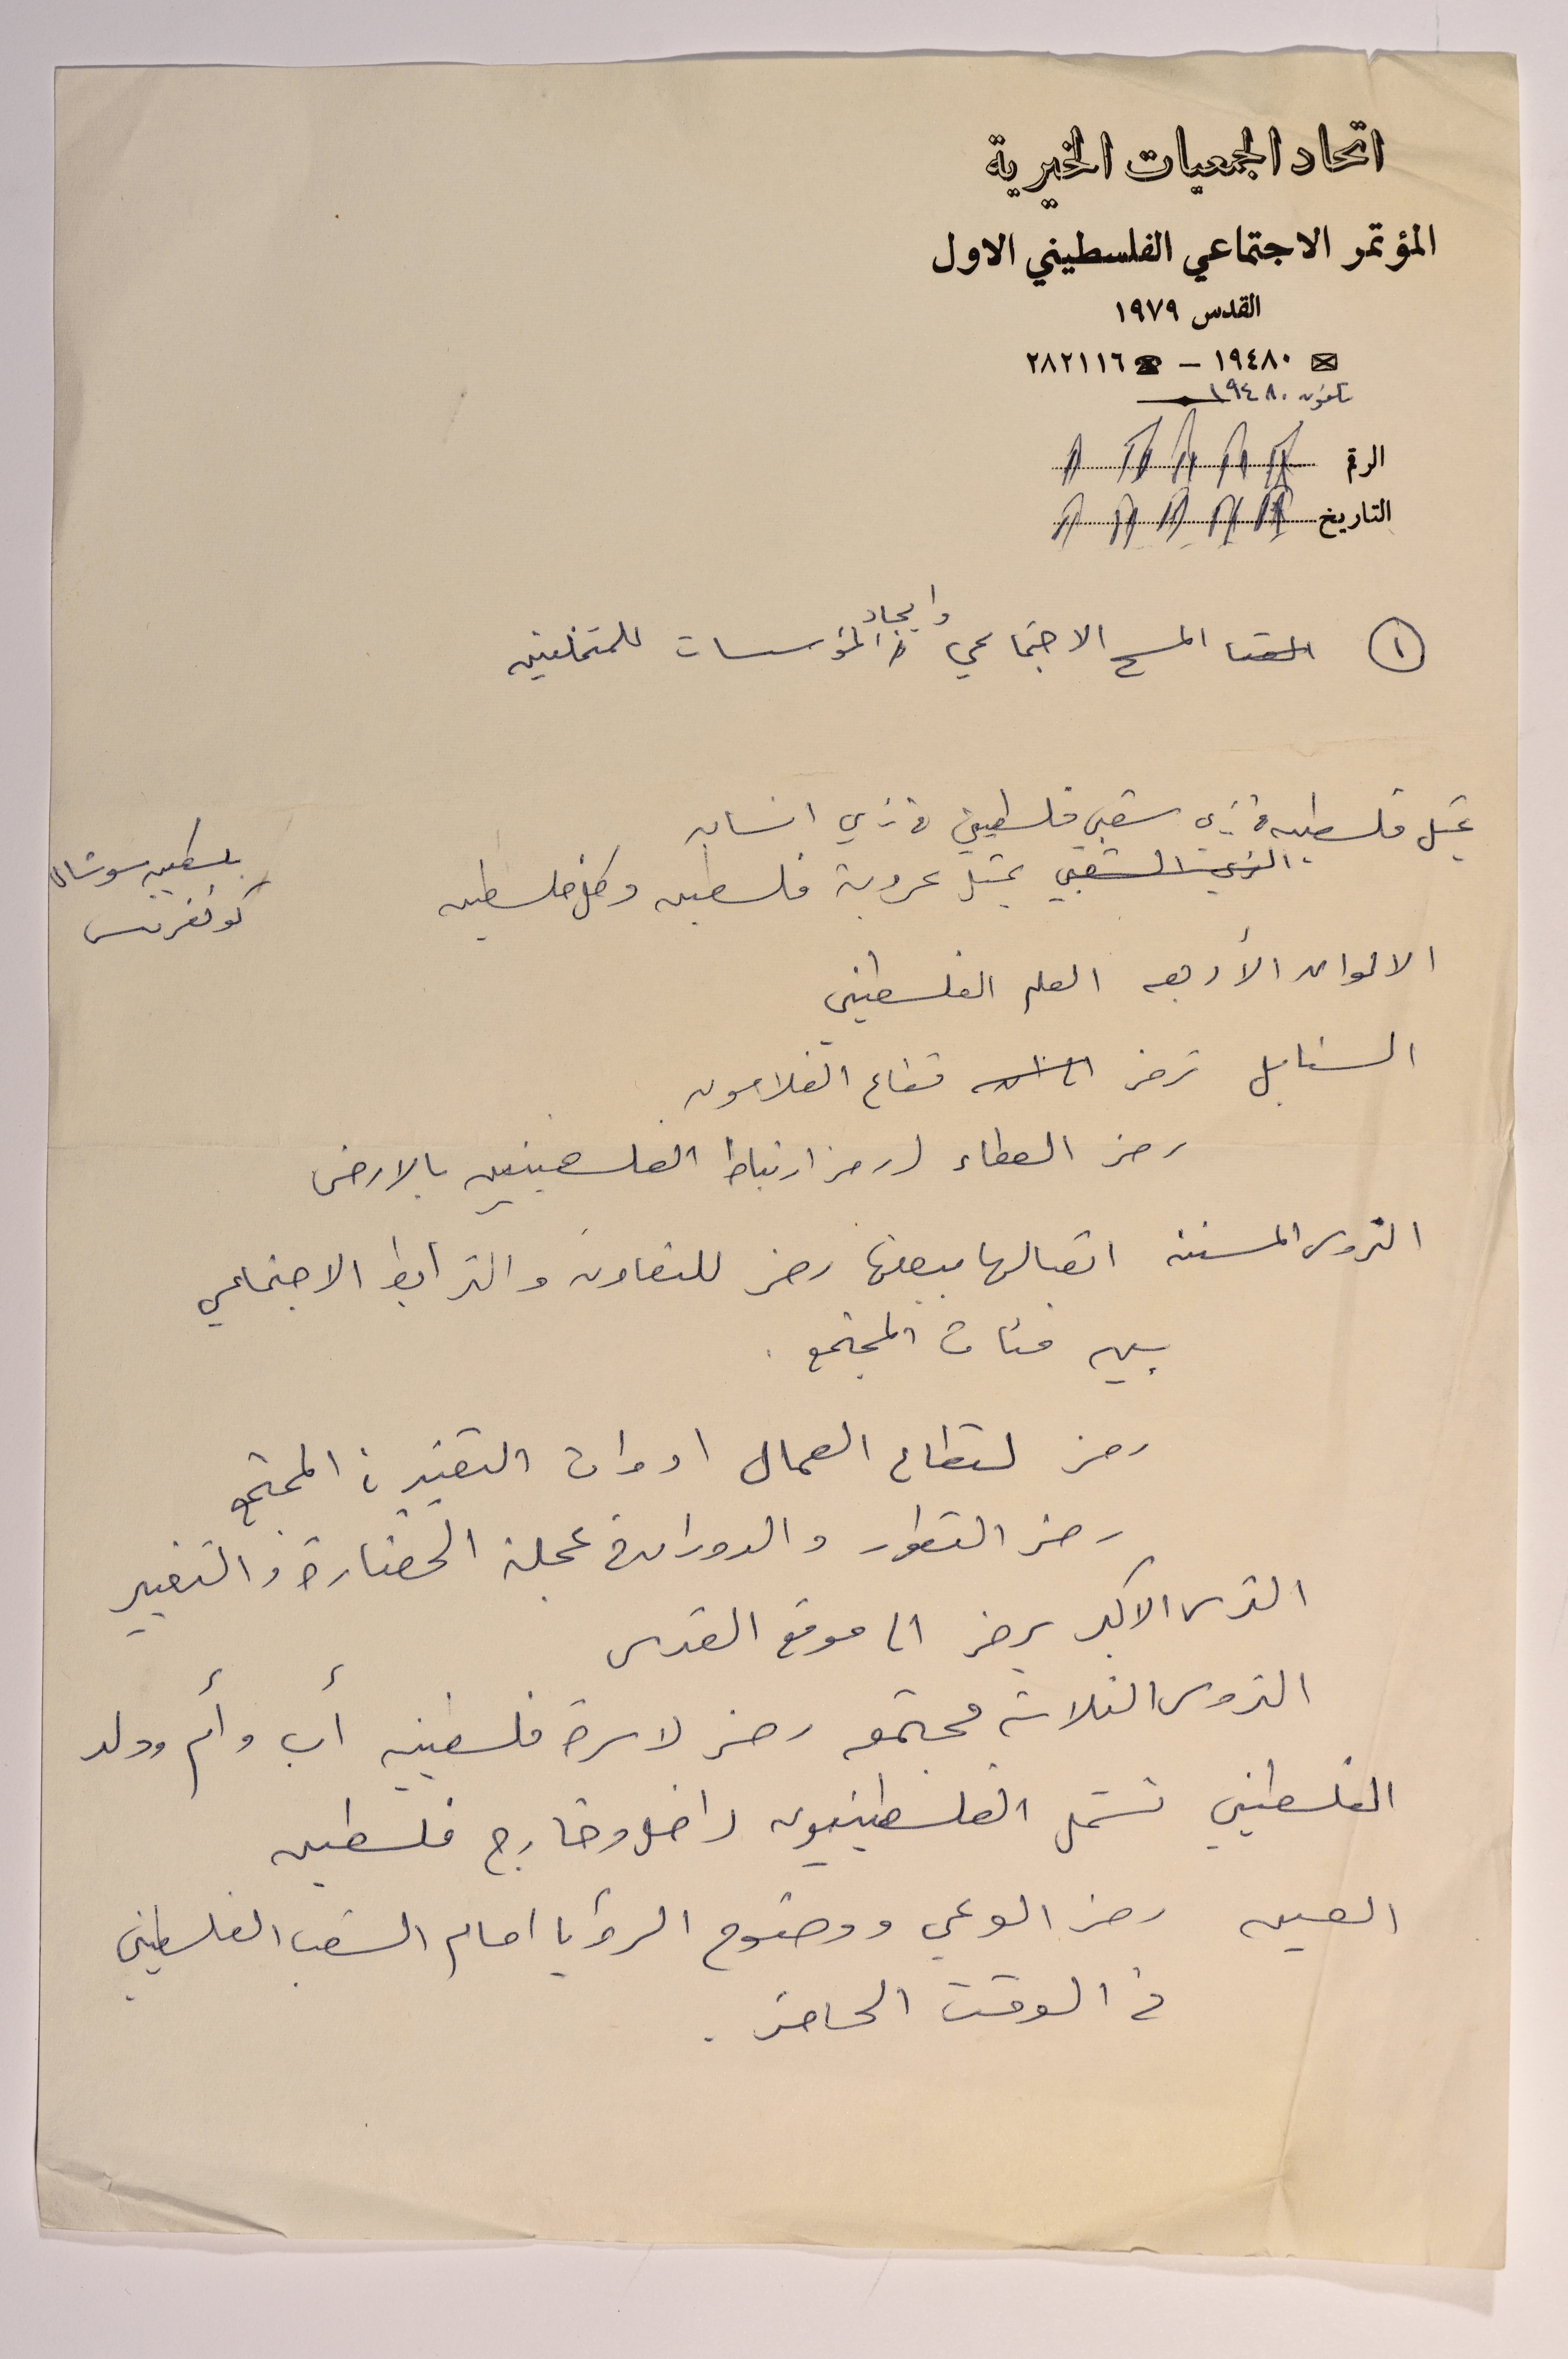 اتحاد الجمعيات الخيرية
المؤتمر الاجتماعي الفلسطيني الاول
القدس ١٩٧٩
١٩٤٨٠ – ٢٨٢١١٦
تلفون ١٩٤٨٠
الرقم
التاريخ
وايجاد
١ المسح الاجتماعي المؤسسات للمتخلفين
يمثل فلسطين في زي شعبي فلسطيني في زي انسان
الزي الشعبي يمثل عروبة فلسطين وكل فلسطين
بلسطين سوشال
كونفرنس
الالوان الأربعه العلم الفلسطيني
السنابل ترمز الى قطاع الفلاحون
رمز العطاء رمز ارتباط الفلسطينيين بالارض
التروس المسننه اتصالها ببعضها رمز للتعاون والترابط الاجتماعي
بين فئات المجتمع .
رمز لقطاع العمال ادوات التغيير في المجتمع
رمز التطور والدوران في عجلة الحضارة والتغيير
الترس الاكبر يرمز الى موقع القدس
التروس الثلاثه مجتمعه رمز لاسرة فلسطينيه أب وأم وولد
الفلسطيني تشمل الفلسطينيون داخل وخارج فلسطين
العين رمز الوعي ووضوح الرؤيا امام الشعب الفلسطيني
في الوقت الحاضر .